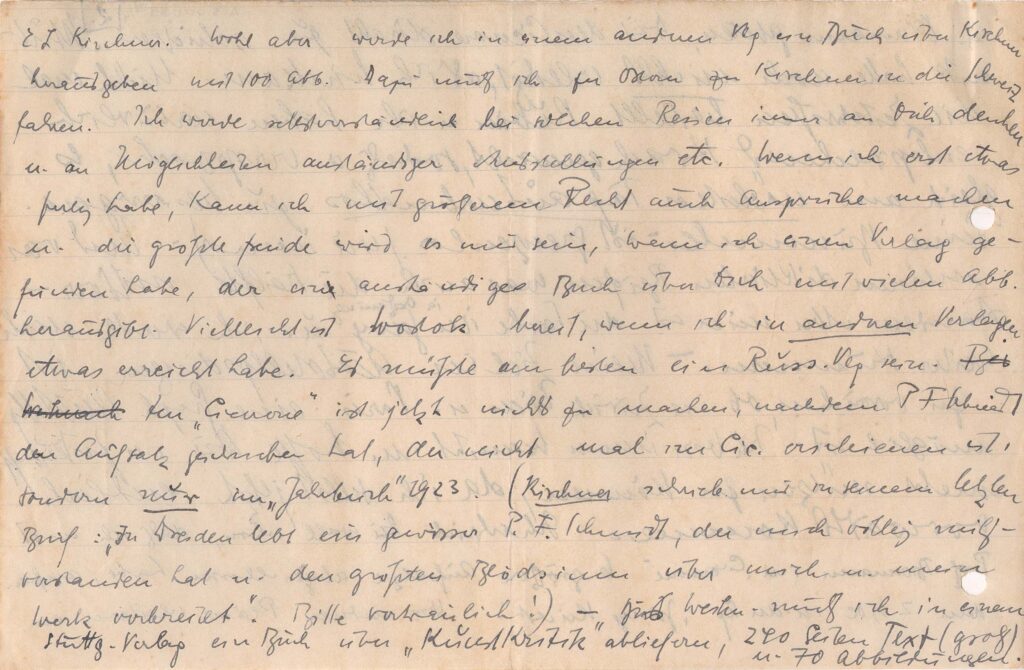 E L Kirchner. Wohl aber werde ich in einem andren Vlg ein Buch über Kirchner
herausgeben mit 100 Abb. Dazu muß ich zu Ostern zu Kirchner in die Schweiz
fahren. Ich werde selbstverständlich bei solchen Reisen immer an Dich denken
u. an Möglichkeiten anständiger Ausstellungen etc. Wenn ich erst etwas
fertig habe, kann ich mit größerem Recht auch Ansprüche machen
u. die größte Freude wird es mir sein, wenn ich einen Verlag ge-
funden habe, der ein anständiges Buch über Dich mit vielen Abb.
herausgibt. Vielleicht ist Wostok bereit, wenn ich in andren Verlagen
etwas erreicht habe. Es müßte am besten ein Russ. Vlg sein. Bei
Im „Cicerone" ist jetzt nichts zu machen, nachdem P F Schmidt
den Aufsatz geschrieben hat, der nicht mal im Cic. erschienen ist,
sondern nur im „Jahrbuch" 1923 (Kirchner schrieb mir in seinem letzten
Brief: „In Dresden lebt ein gewisser P. F. Schmidt, der mich völlig miß-
verstanden hat u. den größten Blödsinn über mich u. mein
Werk verbreitet". Bitte vertraulich!) — Weihn. muß ich in einem
Stuttg. Verlag ein Buch über „Kunstkritik" abliefern, 240 Seiten Text (groß)
u. 70 Abbildungen.